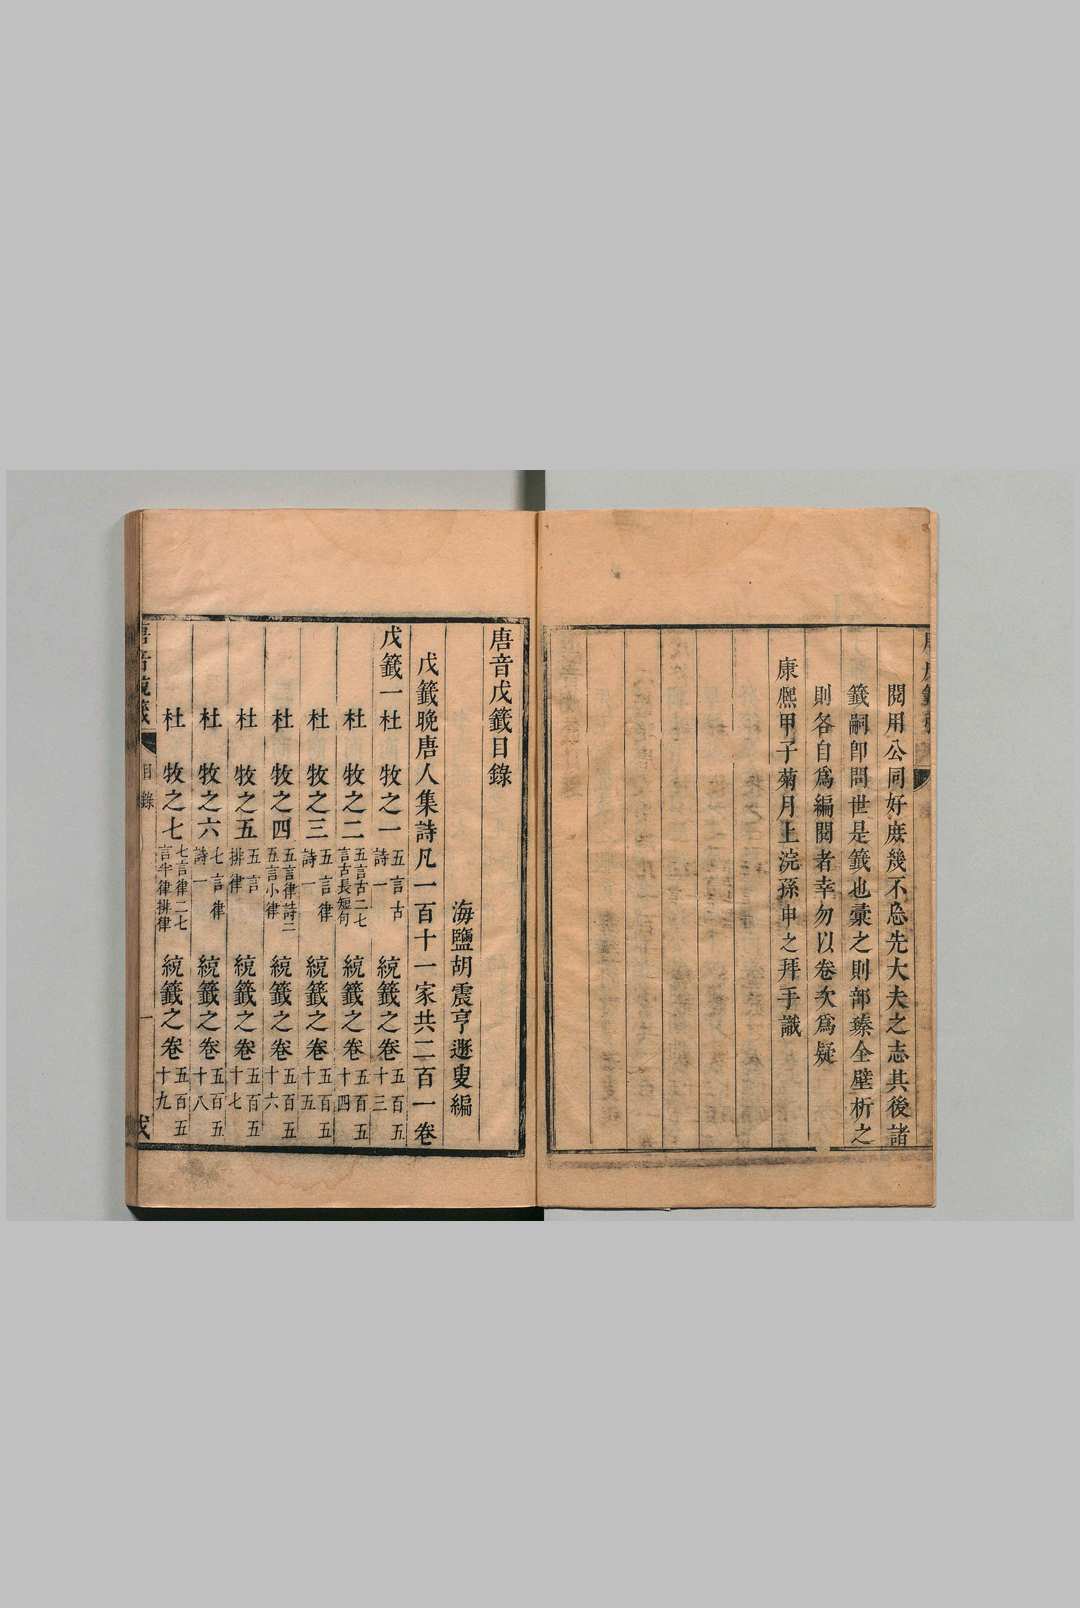 閱用公同好庶幾不忘先大夫之志其後諸
籤嗣卽問世是籤也彙之則部臻全壁析之
則各自爲編閱者幸勿以卷次爲疑
康熈甲子菊月上浣孫申之拜手識
唐音戊籤目錄
海鹽胡震亨遯叟編
戊籤晚唐人集詩凡一百十一家共二百一卷
戊籤一杜牧之一 五言古詩一 統籤之卷五百五十三
杜牧之二 五言古二七言古長短句 統籤之卷五百五十四
杜牧之三 五言律詩一 統籤之卷五百五十五
杜牧之四 五言律詩二五言小律 統籤之卷五百五十六
杜牧之五 五言排律 統籤之卷五百五十七
杜牧之六 七言律詩一 統籤之卷五百五十八
杜牧之七 七言律二七言半律排律 統籤之卷五百五十九
唐音統籤 目錄 一 戊